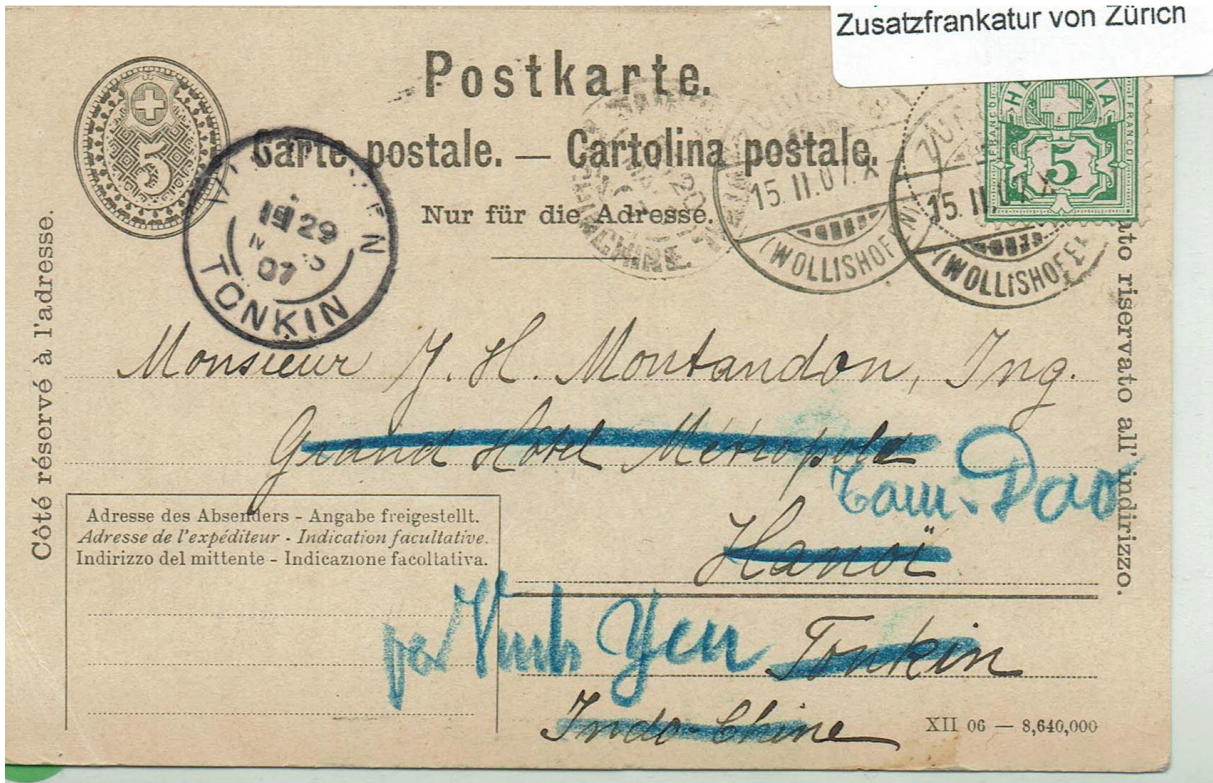 Zusatzfrankatur von Zürich
Postkarte.
Carte postale. — Cartolina postale.
Nur für die Adresse.
5
5
FRANCO
FRANCO
15. II. 07. X
(WOLLISHOFEN)
15. II. 07. X
(WOLLISHOFEN)
29
07
TONKIN
Côté réservé à l'adresse.
riservato all' indirizzo.
Monsieur J. H. Montandon, Ing.
Grand Hôtel Métropole
Tam-Dao
Hanoï
per Vinh Yen
Tonkin
Indo-Chine
Adresse des Absenders - Angabe freigestellt.
Adresse de l'expéditeur - Indication facultative.
Indirizzo del mittente - Indicazione facoltativa.
XII 06 — 8,640,000